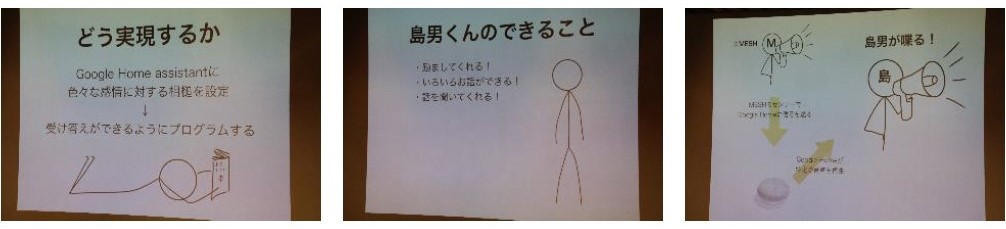 どう実現するか
Google Home assistantに
色々な感情に対する相槌を設定
↓
受け答えができるようにプログラムする
島男くんのできること
・励ましてくれる！
・いろいろお話ができる！
・話を聞いてくれる！
MESH
M
島男が喋る！
島
MESHのセンサーで
Google Homeに信号を送る
Google Homeが